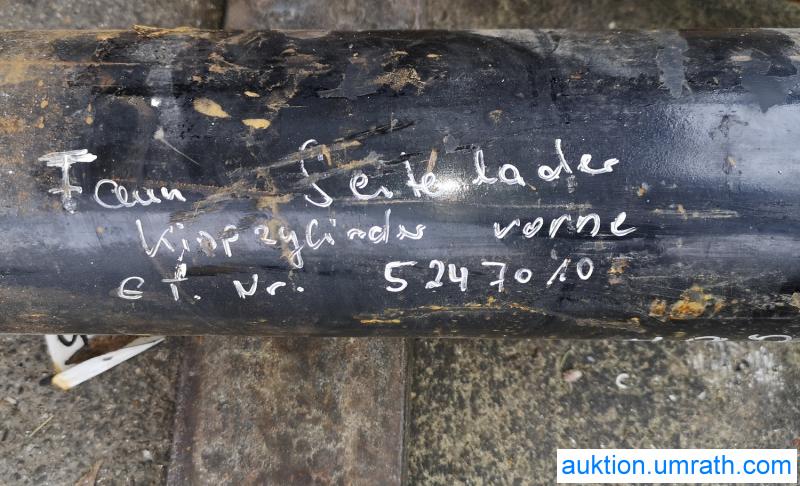 Faun Seitelader
Kippzylinder vorne
ET. Nr. 5247010
auktion.umrath.com